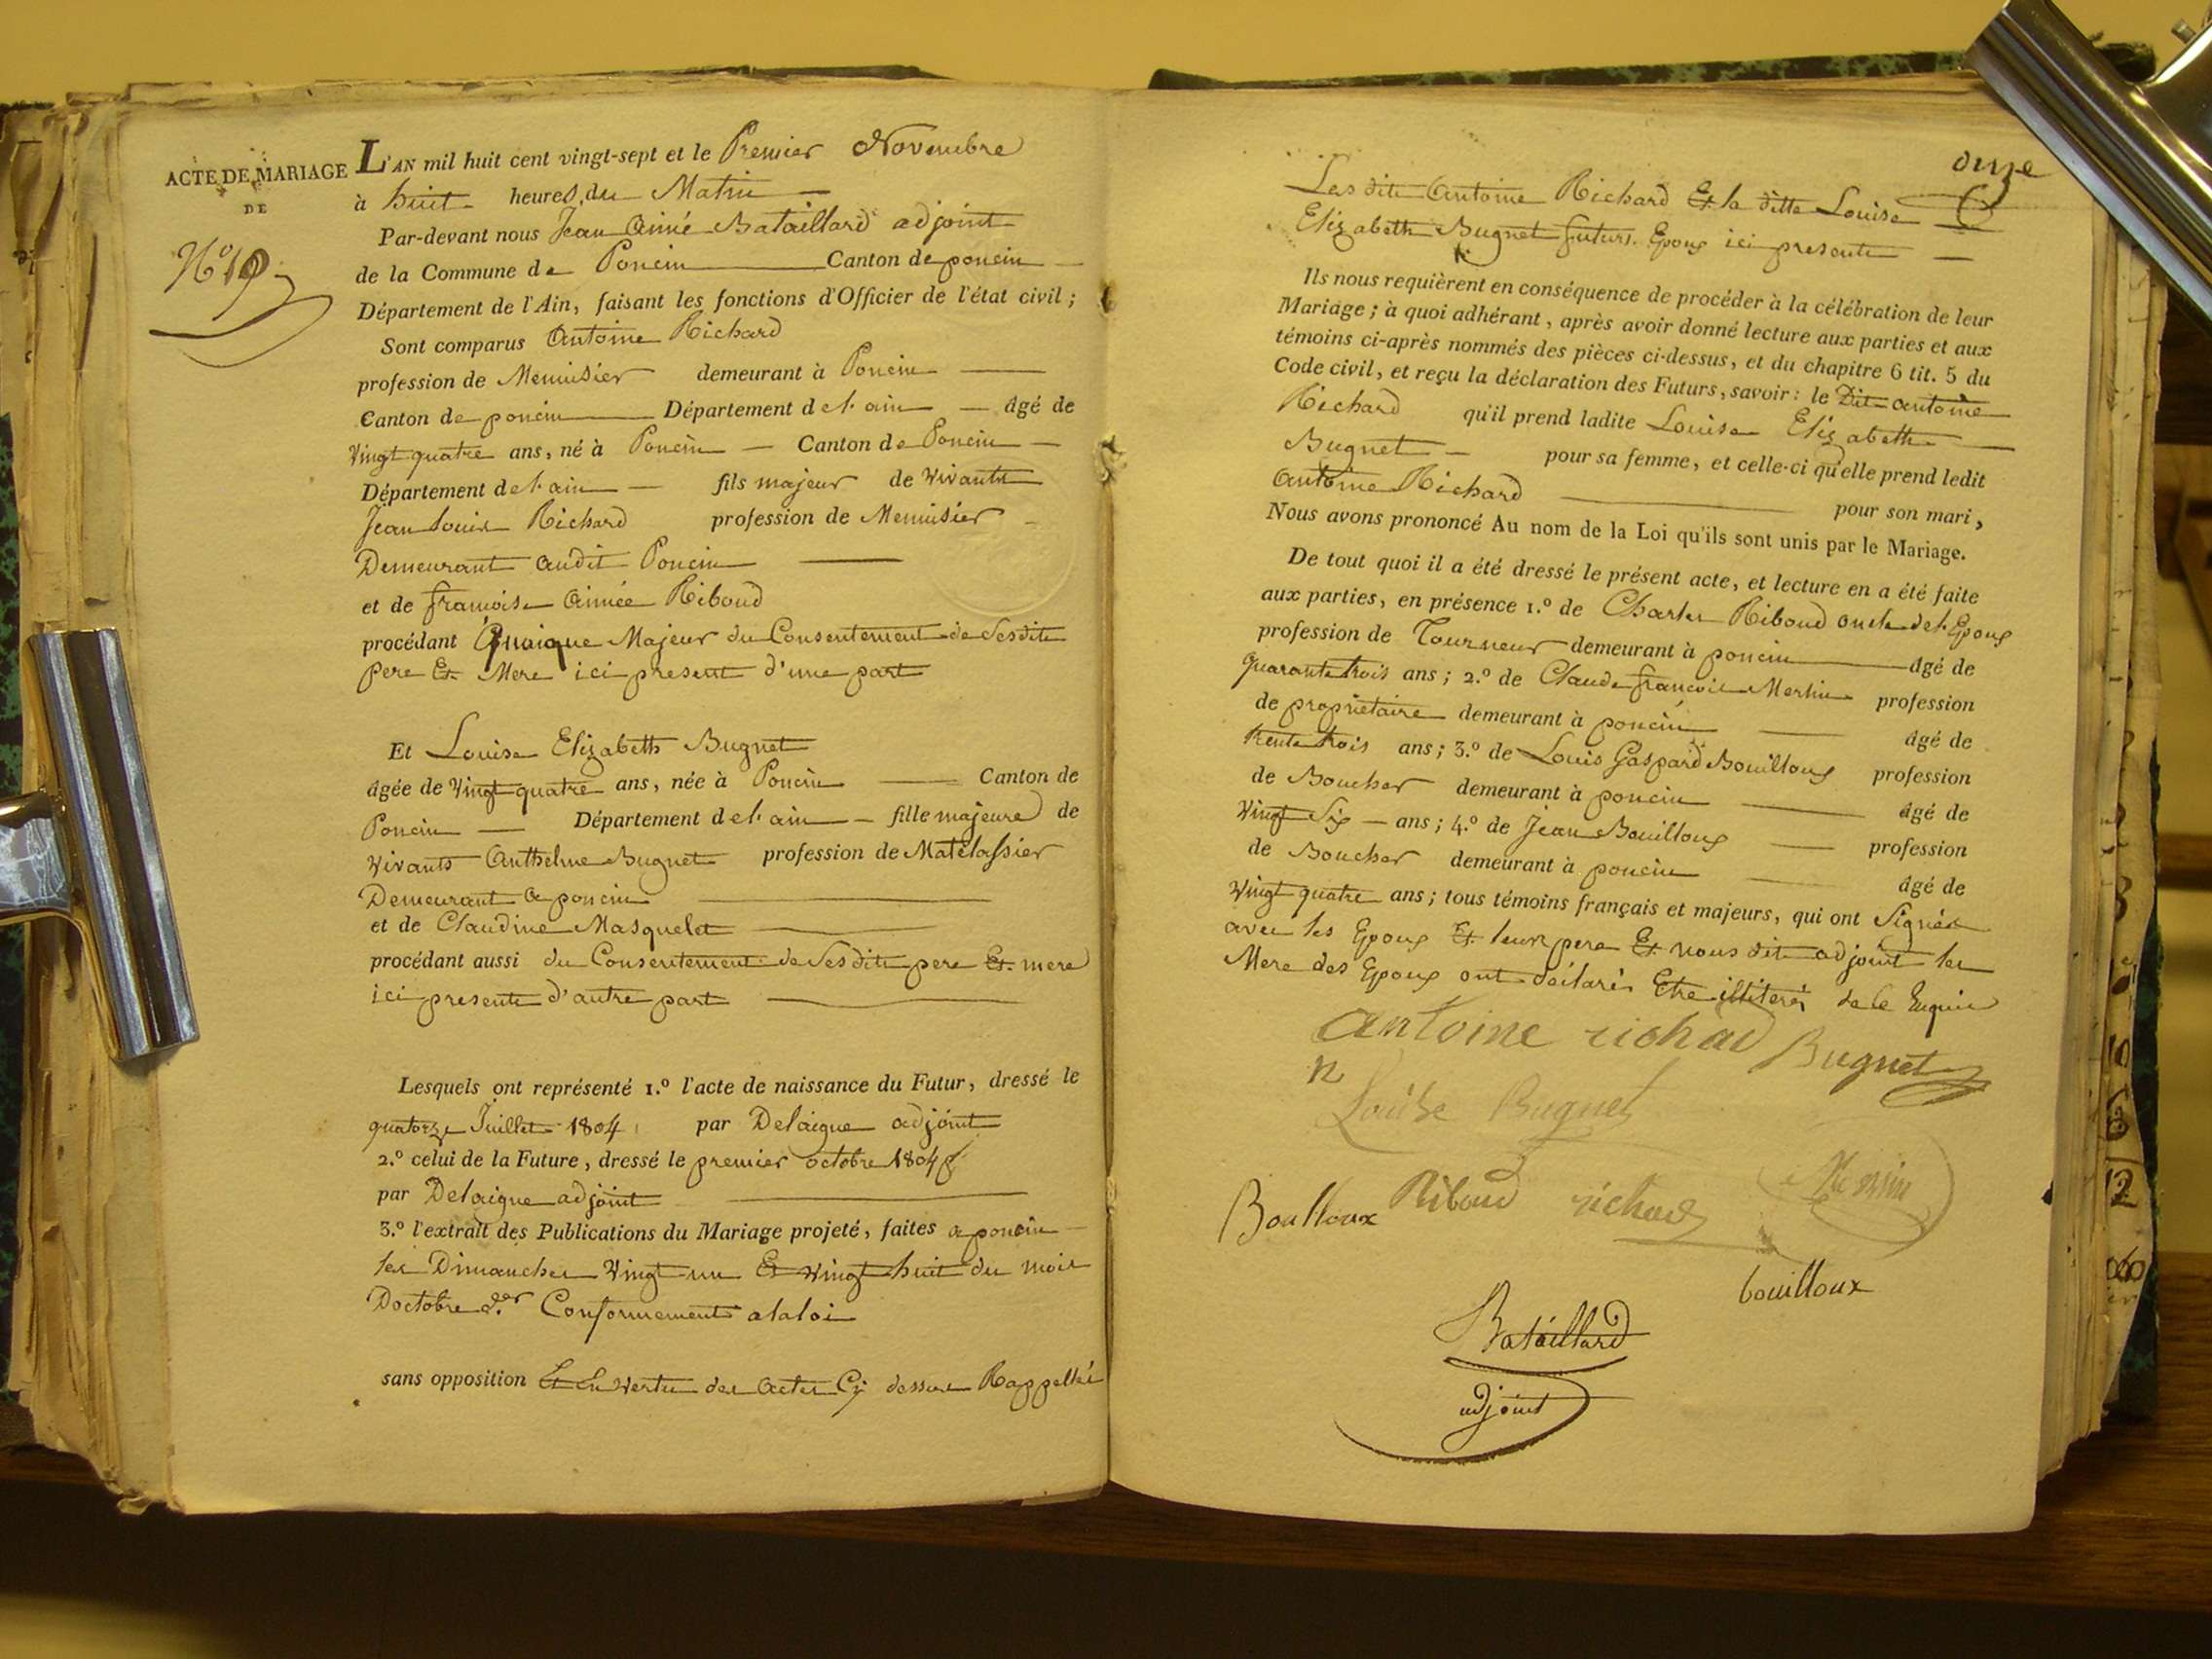 ACTE DE MARIAGE
DE
N.º 19
L'AN mil huit cent vingt-sept et le Premier Novembre
à huit heures du Matin
Par-devant nous Jean Aimé Bataillard adjoint
de la Commune de Poncin Canton de poncin
Département de l'Ain, faisant les fonctions d'Officier de l'état civil ;
Sont comparus Antoine Richard
profession de Menuisier demeurant à Poncin
Canton de poncin Département de l'ain âgé de
Vingt quatre ans, né à Poncin Canton de Poncin
Département de l'ain fils majeur de Vivants
Jean Louis Richard profession de Menuisier
Demeurant audit Poncin
et de françoise Aimée Riboud
procédant Quoique Majeur du Consentement de Sesdits
Pere Et Mere ici present d'une part
Et Louise Elizabeth Bugnet
âgée de Vingt quatre ans, née à Poncin Canton de
Poncin Département de l'ain fille majeure de
Vivants Anthelme Bugnet profession de Matelassier
Demeurant a poncin
et de Claudine Masquelet
procédant aussi du Consentement de Ses dits pere Et mere
ici presents d'autre part
Lesquels ont représenté 1.º l'acte de naissance du Futur, dressé le
quatorze Juillet 1804 par Delaigue adjoint
2.º celui de la Future, dressé le premier octobre 1804
par Delaigue adjoint
3.º l'extrait des Publications du Mariage projeté, faites a poncin
les Dimanches Vingt un Et Vingt huit du mois
Doctobre d.er Conformement a la loi
sans opposition Et En Vertu des Actes Cy dessus Rappellés
onze
Lesdits Antoine Richard Et la ditte Louise
Elizabeth Bugnet futurs Epoux ici presents
Ils nous requièrent en conséquence de procéder à la célébration de leur
Mariage ; à quoi adhérant, après avoir donné lecture aux parties et aux
témoins ci-après nommés des pièces ci-dessus, et du chapitre 6 tit. 5 du
Code civil, et reçu la déclaration des Futurs, savoir : le Dit antoine
Richard qu'il prend ladite Louise Elizabeth
Bugnet pour sa femme, et celle-ci qu'elle prend ledit
Antoine Richard pour son mari,
Nous avons prononcé Au nom de la Loi qu'ils sont unis par le Mariage.
De tout quoi il a été dressé le présent acte, et lecture en a été faite
aux parties, en présence 1.º de Charles Riboud oncle de l'Epoux
profession de Tourneur demeurant à poncin âgé de
quarante trois ans ; 2.º de Claude françois Merlin profession
de propriétaire demeurant à poncin âgé de
trente trois ans ; 3.º de Louis Gaspard Bouilloux profession
de Boucher demeurant à poncin âgé de
Vingt Six ans ; 4.º de Jean Bouilloux profession
de Boucher demeurant à poncin âgé de
Vingt quatre ans ; tous témoins français et majeurs, qui ont Signés
avec les Epoux Et leurs pere Et nous dit adjoint les
Mere des Epoux ont déclarés Etre illiterés de ce Enquis
Antoine richad Bugnet
Louise Bugnet
Boulloux Riboud richard
bouilloux
Bataillard
adjoint